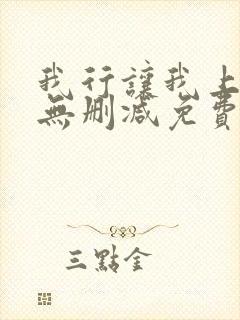 我行讓我上
無刪減免費
三點金